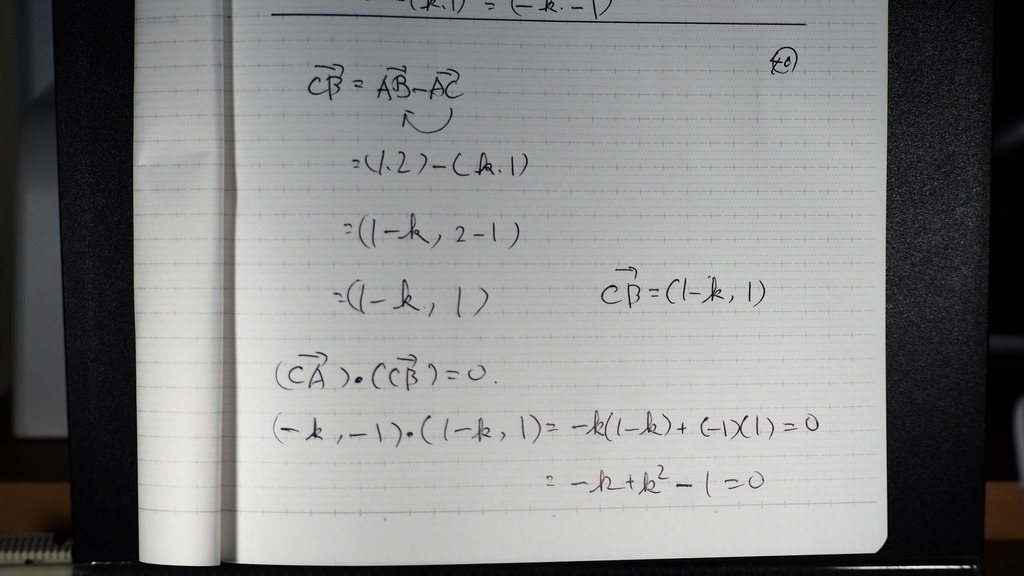 -(k.1) = (-k. -1)
40
CB→ = AB→ - AC→
= (1.2) - (k.1)
= (1-k, 2-1)
= (1-k, 1)   CB→ = (1-k, 1)
(CA→)•(CB→) = 0.
(-k, -1)•(1-k, 1) = -k(1-k) + (-1)(1) = 0
= -k + k² - 1 = 0